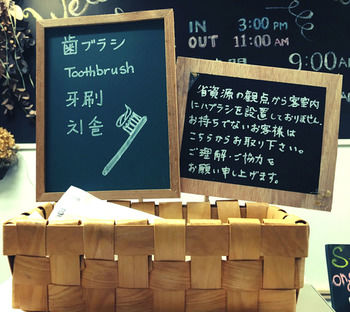 We
IN 3:00 PM
OUT 11:00 AM
9:00 AM
歯ブラシ
Toothbrush
牙刷
치솔
省資源の観点から客室内
にハブラシを設置しておりません。
お持ちでないお客様は
こちらからお取り下さい。
ご理解・ご協力を
お願い申し上げます。